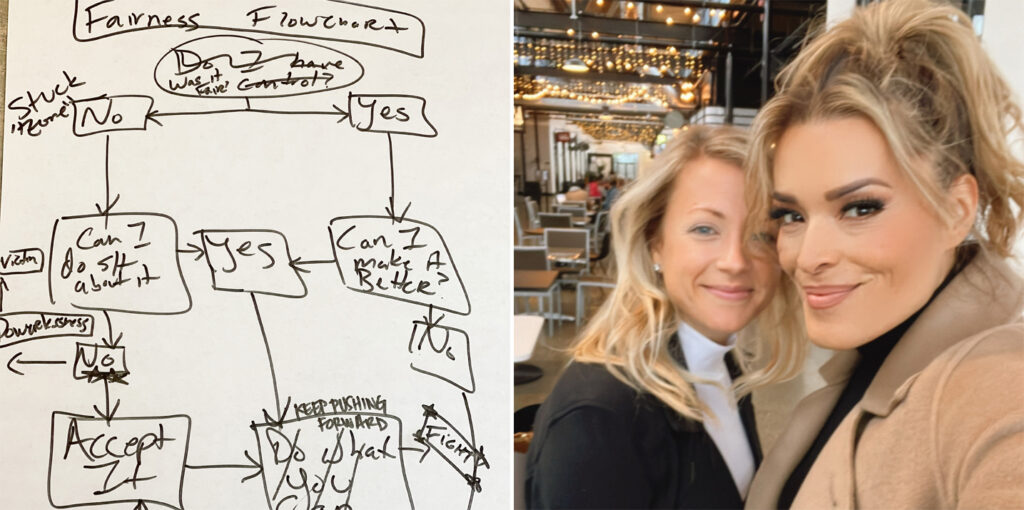 Fairness Flowchart
Do I have
Was it fair? Control?
Stuck
No
Yes
Can I
Do s/t
about it
Yes
Can I
make it
Better?
victim
Powerlessness
No
No
KEEP PUSHING
FORWARD
Accept
It
Do what
You
Can
FIGHT